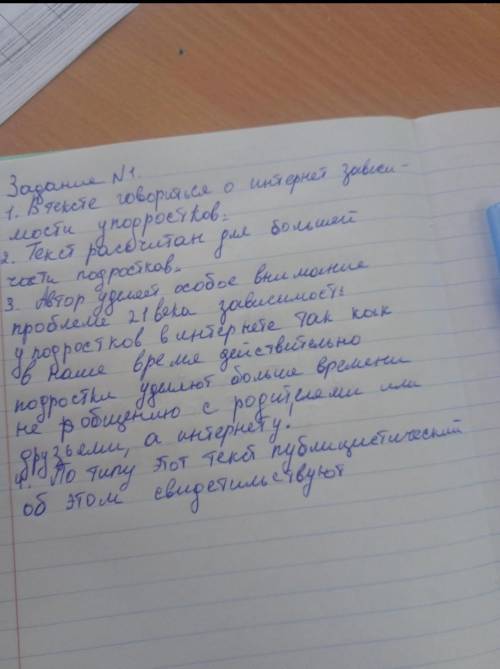 Задание №1.
1. В тексте говориться о интернет зависи-
мости у подростков.
2. Текст рассчитан для большей
части подростков.
3. Автор уделяет особое внимание
проблеме 21 века зависимость
у подростков в интернете так как
в наше время действительно
подростки уделяют больше времени
не общению с родителями или
друзьями, а интернету.
4. По типу этот текст публицистический
об этом свидетильствуют